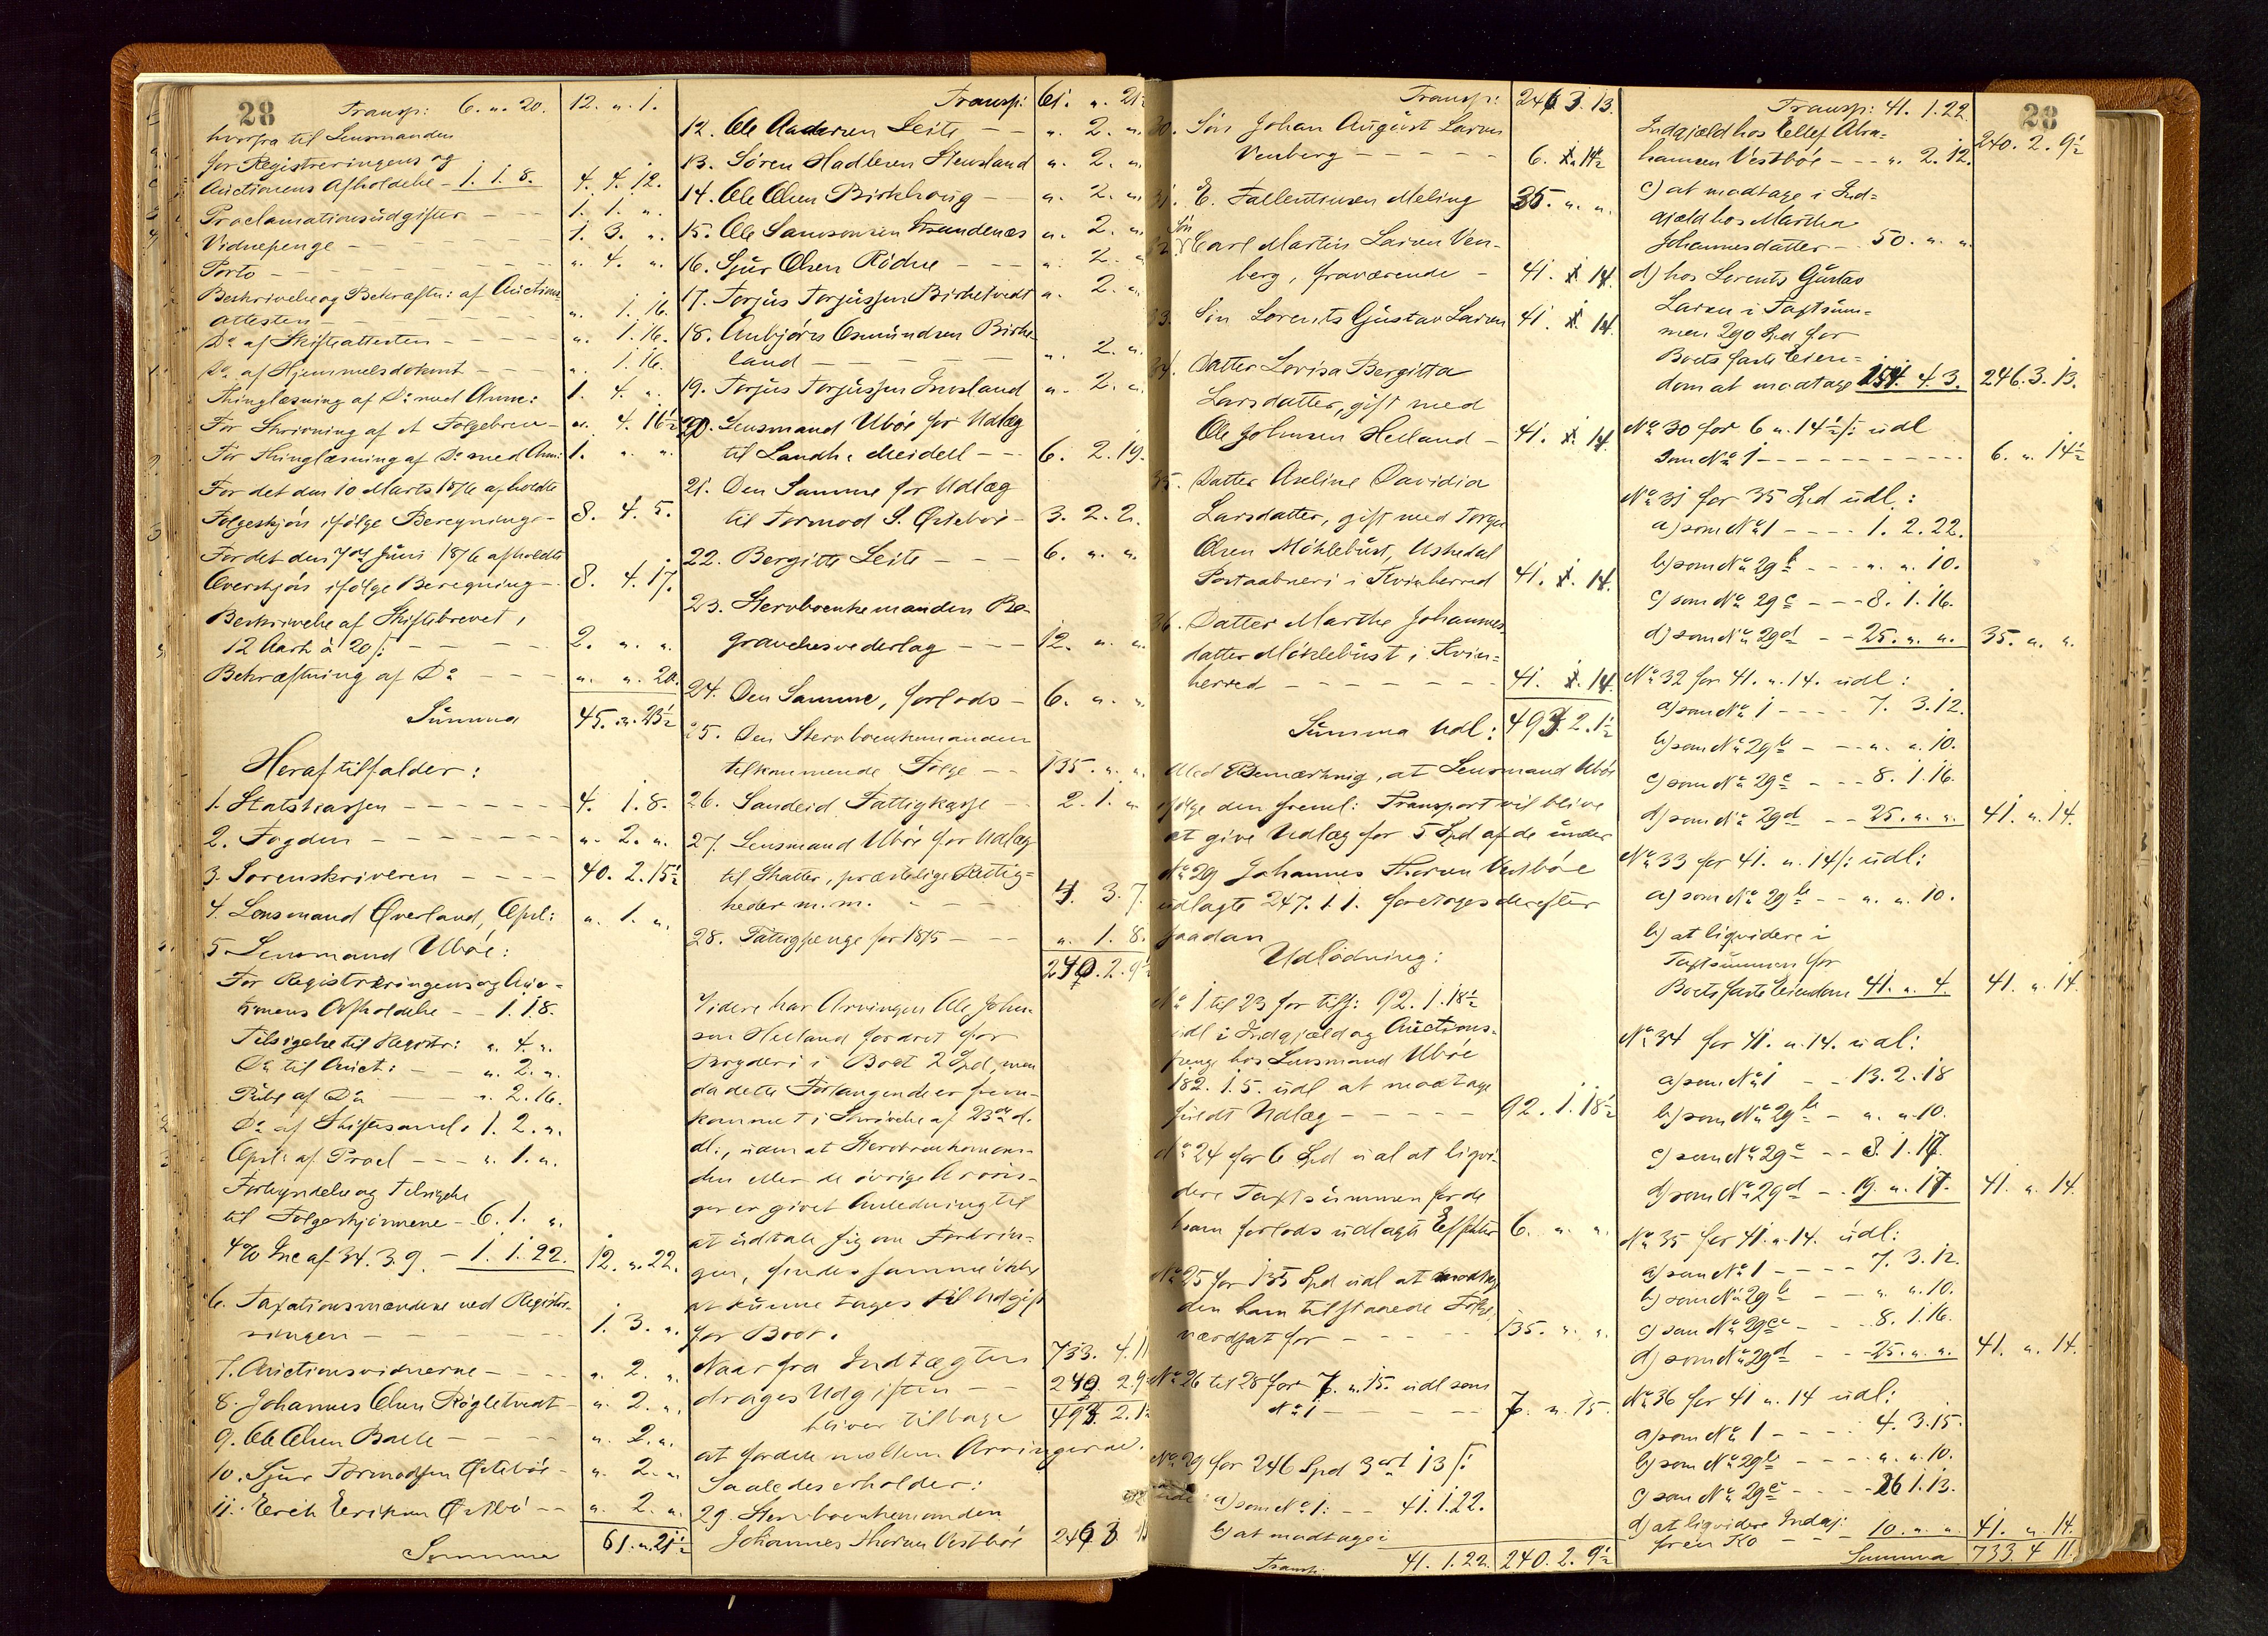 28
Transp: 6. „. 20. 12. „. 1.
hvorfra til Lensmanden
for Registreringens og
Auctionens Afholdelse - 1. 1. 8. 4. 4. 12.
Proclamationsudgifter - - - 1. 1. „.
Vidnepenge - - - - - 1. 3. „.
Porto - - - - - „. 4. „.
Beskrivelse og Bekræftn: af Auctions
attesten - - - - „. 1. 16.
Do af Skifteattesten - - - - „. 1. 16.
Do af Hjemmelsdokmt - - - „. 1. 16.
Thinglæsning af Do med Anm: 1. 4. „.
For Skrivning af et Følgebrev - „. 4. 16½
For Thinglæsning af Do med Anm: 1. „. „.
For det den 10 Marts 1876 afholdte
Følgeskjøn ifølge Beregning - 8. 4. 5.
For det den 7de Juni 1876 afholdte
Overskjøn ifølge Beregning - 8. 4. 17.
Beskrivelse af Skiftebrevet,
12 Aark à 20 /: - - - 2. „. „.
Bekræftning af Do - - - „. „. 20.
Summa 45. „. 23½
Heraf tilfalder:
1. Statskassen - - - - - 4. 1. 8.
2. Fogden - - - - - „. 2. „.
3. Sorenskriveren - - - - 40. 2. 15½
4. Lensmand Øverland, Opl: „. 1. „.
5. Lensmand Ubøe:
For Registreringens og Auc=
tionens Afholdelse - - 1. 1. 8.
Tilsigelse til Registr: „. 4. „.
Do til Auct: - - „. 2. „.
Publ af Do - - „. 2. 16.
Do af Skiftesaml. 1. 2. „.
Opl: af Procl - - - „. 1. „.
Forkyndelse og Tilsigelse
til Følgeskjønnene - 6. 1. „.
4% Inc af 34. 3. 9. - 1. 1. 22. 12. „. 22.
6. Taxationsmændene ved Registre-
ringen - - - - 1. 3. „.
7. Auctionsvidnerne - - - - „. 2. „.
8. Johannes Olsen Røgletvedt - „. 2. „.
9. Ole Olsen Bače - - - - „. 2. „.
10. Sjur Tormodsen Østebøe - „. 2. „.
11. Erik Eriksen Østbø - - „. 2. „.
Summa 61. „. 21½
Transp: 61. „. 21½
12. Ole Andersen Leite - - „. 2. „.
13. Søren Hadlesen Stensland „. 2. „.
14. Ole Olsen Birkhoug - - „. 2. „.
15. Ole Samsonsen Strandenæs „. 2. „.
16. Sjur Olsen Rødne - - - „. 2. „.
17. Torjus Torjussen Birketvedt „. 2. „.
18. Anbjørn Osmundsen Birke-
land - - - - - „. 2. „.
19. Torjus Torjussen Innsland „. 2. „.
20. Lensmand Ubøe for Udlæg
til Landh. Meidell - - 6. 2. 19.
21. Den Samme for Udlæg
til Tormod S. Østebøe - 3. 2. 2.
22. Bergitte Leite - - - 6. „. „.
23. Stervboenkemanden Be-
gravelsesvederlag - - - 12. „. „.
24. Den Samme, forlods - 6. „. „.
25. Den Stervboenkemanden
tilkommende Følge - - 135. „. „.
26. Sandeid Fattigkasse - 2. 1. „.
27. Lensmand Ubøe for Udlæg
til Skatter, præstelige Rettig-
heder m. m. - - - 4. 3. 7.
28. Fattigpenge for 1875 - - „. 1. 8.
240. 2. 9½
Videre har Arvingen Ole John-
sen Helland fordret for
Røgderi i Boet 2 Spd, men
da dette Forlangende er frem-
kommet i Skrivelse af 23de d.
dl., uden at Stervboenkeman-
den eller de øvrige Arvin-
ger er givet Anledning til
at udtale sig om Fordrin-
gen, findes samme ikke
at kunne tages til Udgift
for Boet.
Naar fra Indtægten 733. 4. 11
drages Udgiften - - 240. 2. 9½
bliver tilbage 493. 2. 1½
at fordele mellem Arvingerne.
Saaledes erholder:
29. Stervboenkemanden
Johannes Thorsen Vestbøe 246 3 13
28
Transp: 246 3. 13.
30. Søn Johan August Larsen
Venberg - - - - - 6. „. 14½
31. E. Fallentinsen Meling 35. „. „.
32. Søn Carl Martin Larsen Ven-
berg, fraværende - 41. „. 14.
33. Søn Lorents Gustav Larsen 41. „. 14.
34. Datter Lovisa Bergitta
Larsdatter, gift med
Ole Johnsen Helland - 41. „. 14.
35. Datter Axeline Davidia
Larsdatter, gift med Torger
Olsen Møhlebust, Uskedal
Postaabneri i Kvinherred 41. „. 14.
36. Datter Marthe Johannes-
datter Møhlebust i Kvin=
herred - - - - - - 41. „. 14.
Summa Udl: 493. 2. 1½
Med Bemærkning, at Lensmand Ubøe
ifølge den freml: Transport vil blive
at give Udlæg for 5 Spd af de under
No 29 Johannes Thorsen Vestbøe
udlagte 247. 1. 1. foretages derefter
saadan
Udlodning:
No 1 til 23 for tils: 92. 1. 18½
udl i Indgjæld og Auctions-
penge hos Lensmand Ubøe
182. 1. 5. udl at modtage
fuldt Udlæg - - - - - 92. 1. 18½
No 24 for 6 Spd udl at liqvi-
dere Taxtsummen for de
ham forlods udlagte Effekter 6. „. „.
No 25 for 135 Spd udl at modtage
den ham tilstaaede Følge,
værdsat for - - - - - 135. „. „.
No 26 til 28 for 7. „. 15. udl som
No 1 - - - - - 7. „. 15.
No 29 for 246 Spd 3 ort 13 /:
udl: a) som No 1: - - 41. 1. 22.
b) at modtage i
Transp: 41. 1. 22. 240. 2. 9½
Transp: 41. 1. 22. 240. 2. 9½
Indgjæld hos Ellef Abra=
hamsen Vestbøe - - - „. 2. 12.
c) at modtage i Ind=
gjæld hos Martha
Johannesdatter - - 50. „. „.
d) hos Lorents Gustav
Larsen i Taxtsum=
men 290 Spd for
Boets faste Eien=
dom at modtage 154. 4. 3. 246. 3. 13.
No 30 for 6 „. 14½ /: udl
som No 1 - - - - - - - - 6. „. 14½
No 31 for 35 Spd udl.:
a) som No 1 - - - - 1. 2. 22.
b) som No 29 b - - - „. „. 10.
c) som No 29 c - - - 8. 1. 16.
d) som No 29 d - - 25. „. „. 35. „. „.
No 32 for 41. „. 14. udl:
a) som No 1 - - - - 7. 3. 12.
b) som No 29 b - - - „. „. 10.
c) som No 29 c - - - 8. 1. 16.
d) som No 29 d - - 25. „. „. 41. „. 14.
No 33 for 41. „. 14 /: udl:
a) som No 29 b - - „. „. 10.
b) at liqvidere i
Taxtsummen for
Boets faste Eiendom 41. „. 4. 41. „. 14.
No 34 for 41. „. 14. udl:
a) som No 1 - - 13. 2. 18
b) som No 29 b - „. „. 10.
c) som No 29 c - - 8. 1. 17.
d) som No 29 d - - 19. „. 17. 41. „. 14.
No 35 for 41. „. 14. udl:
a) som No 1 - - - - 7. 3. 12.
b) som No 29 b - - „. „. 10.
c) som No 29 c - - - 8. 1. 16.
d) som No 29 d - - 25. „. „. 41. „. 14.
No 36 for 41 „. 14 udl:
a) som No 1 - - - - 4. 3. 15.
b) som No 29 b - - - „. „. 10.
c) som No 29 c - - - 26 1. 13.
d) at liqvidere Indgj:
for en Ko - - 10. „. „. 41. „. 14.
Summa 733. 4 11.